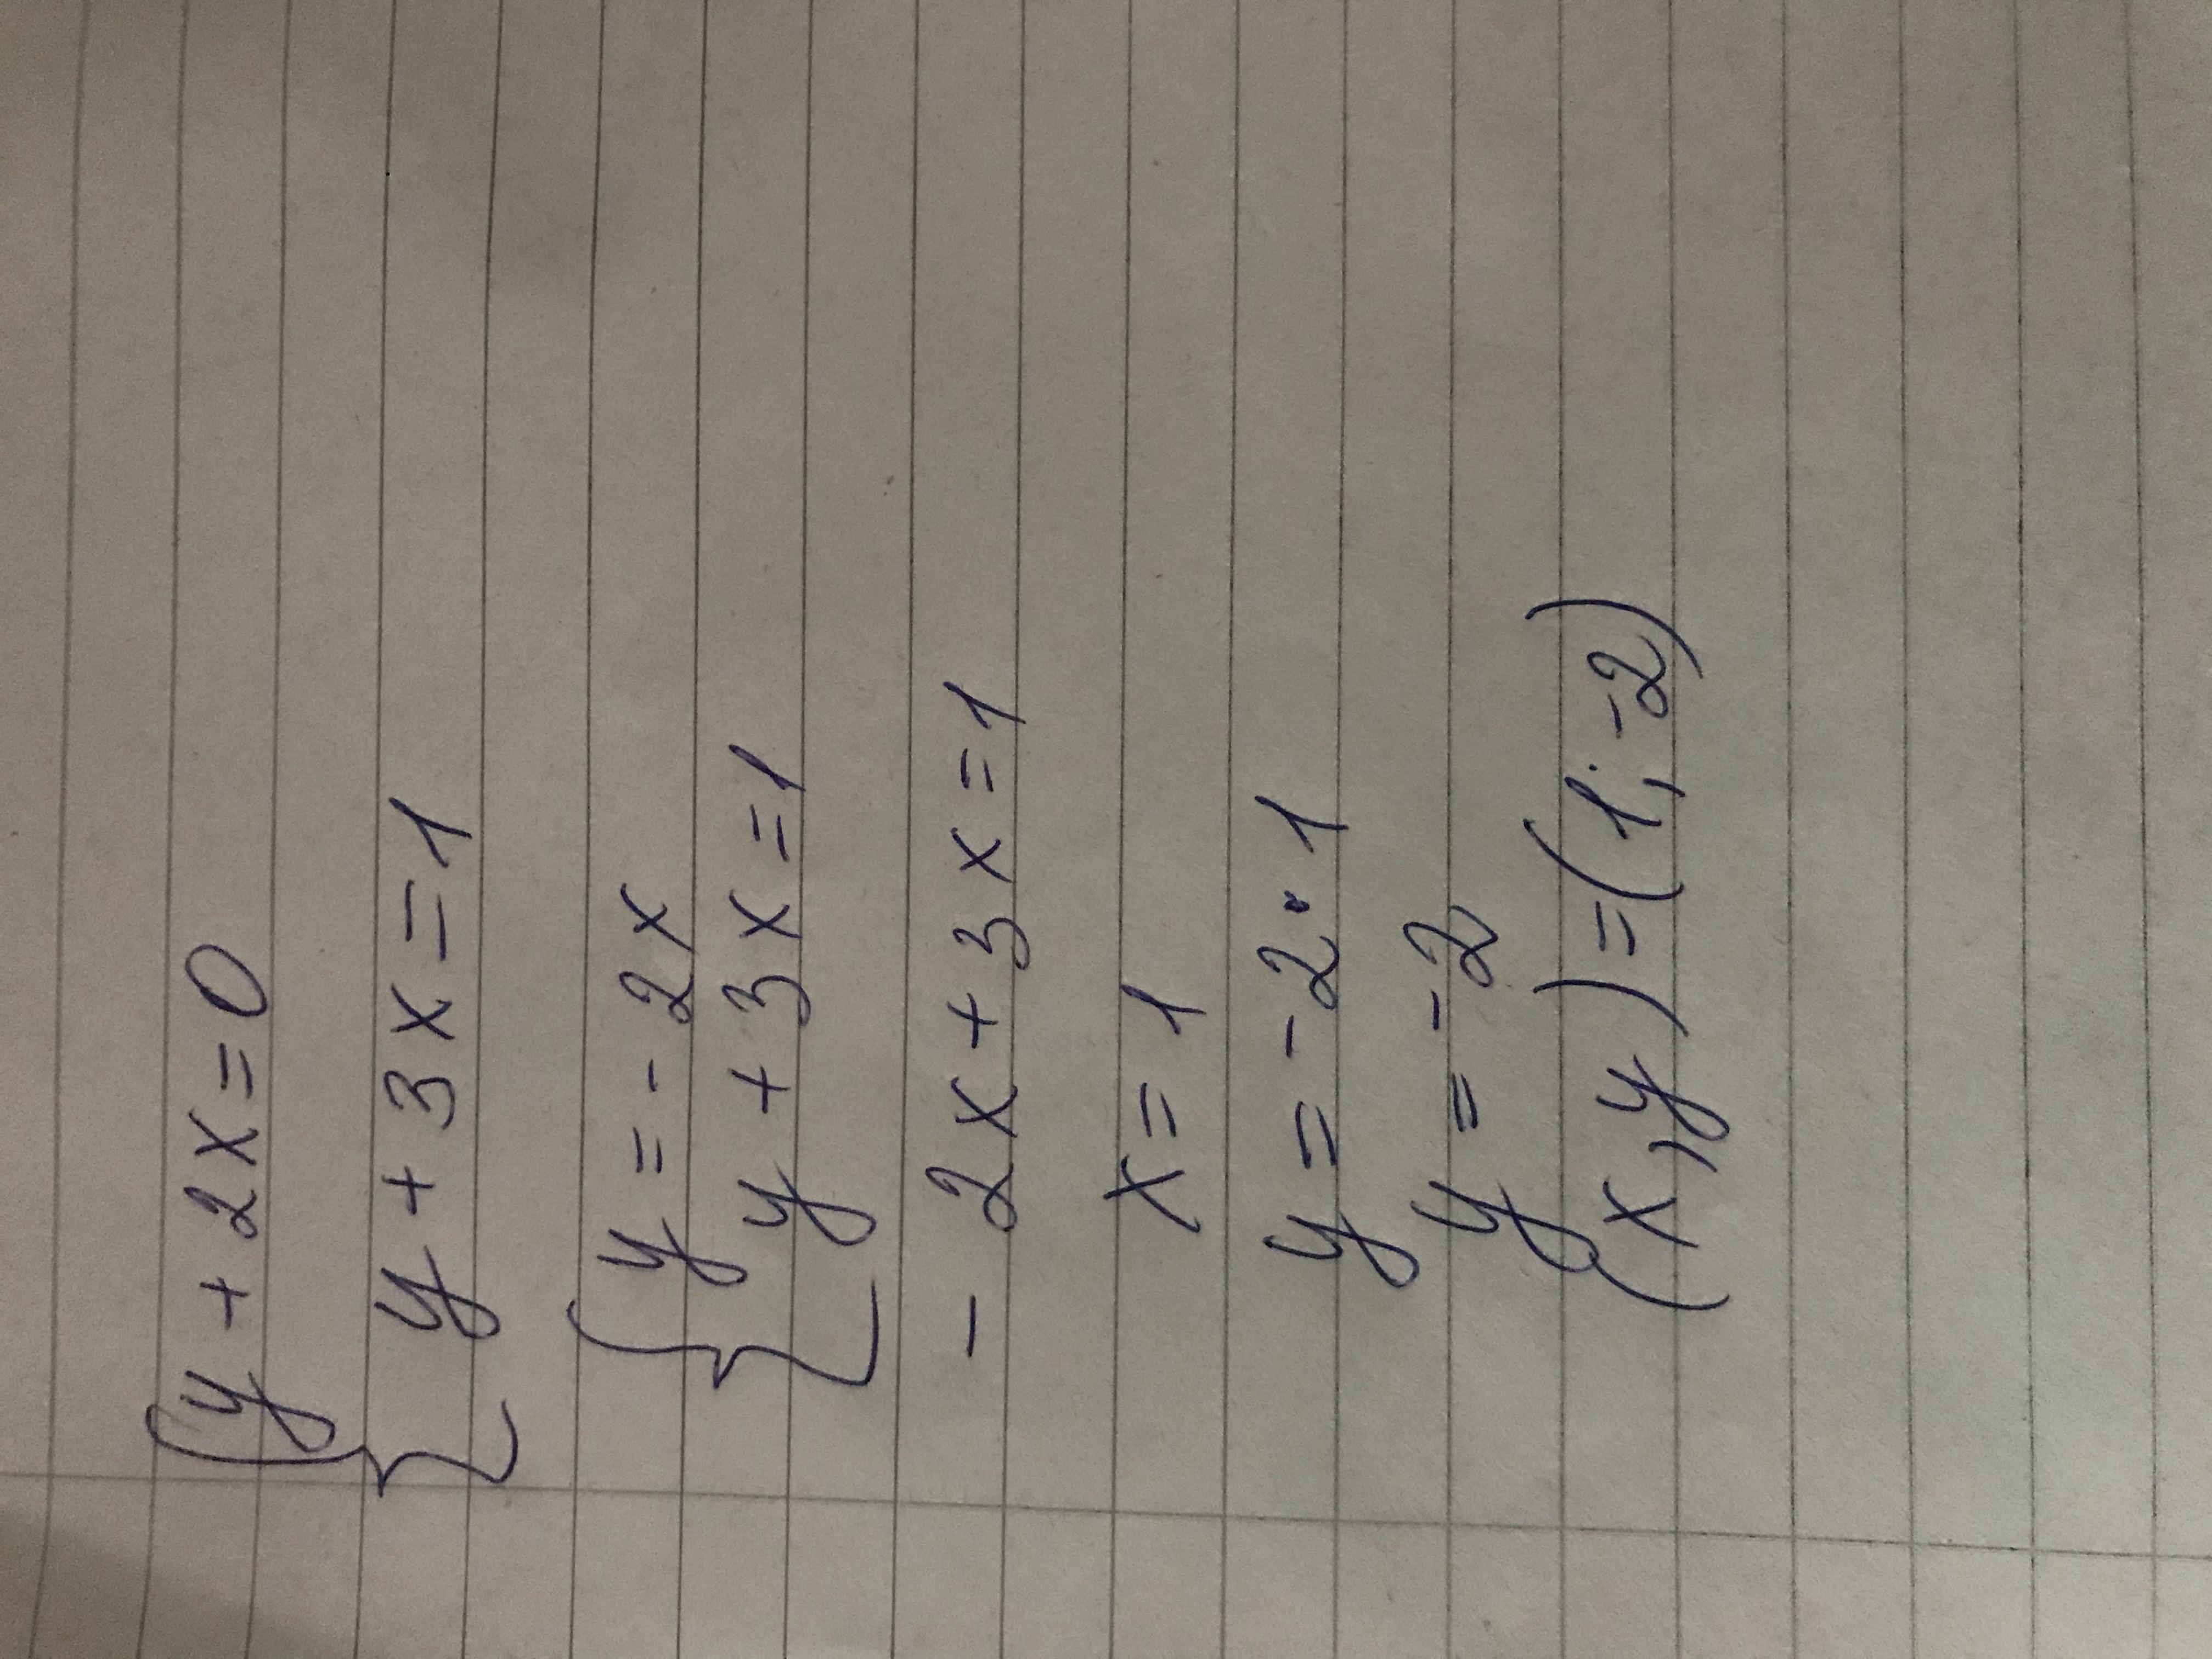 {y + 2x = 0
{y + 3x = 1
{y = - 2x
{y + 3x = 1
- 2x + 3x = 1
x = 1
y = -2 · 1
y = -2
(x, y) = (1; -2)